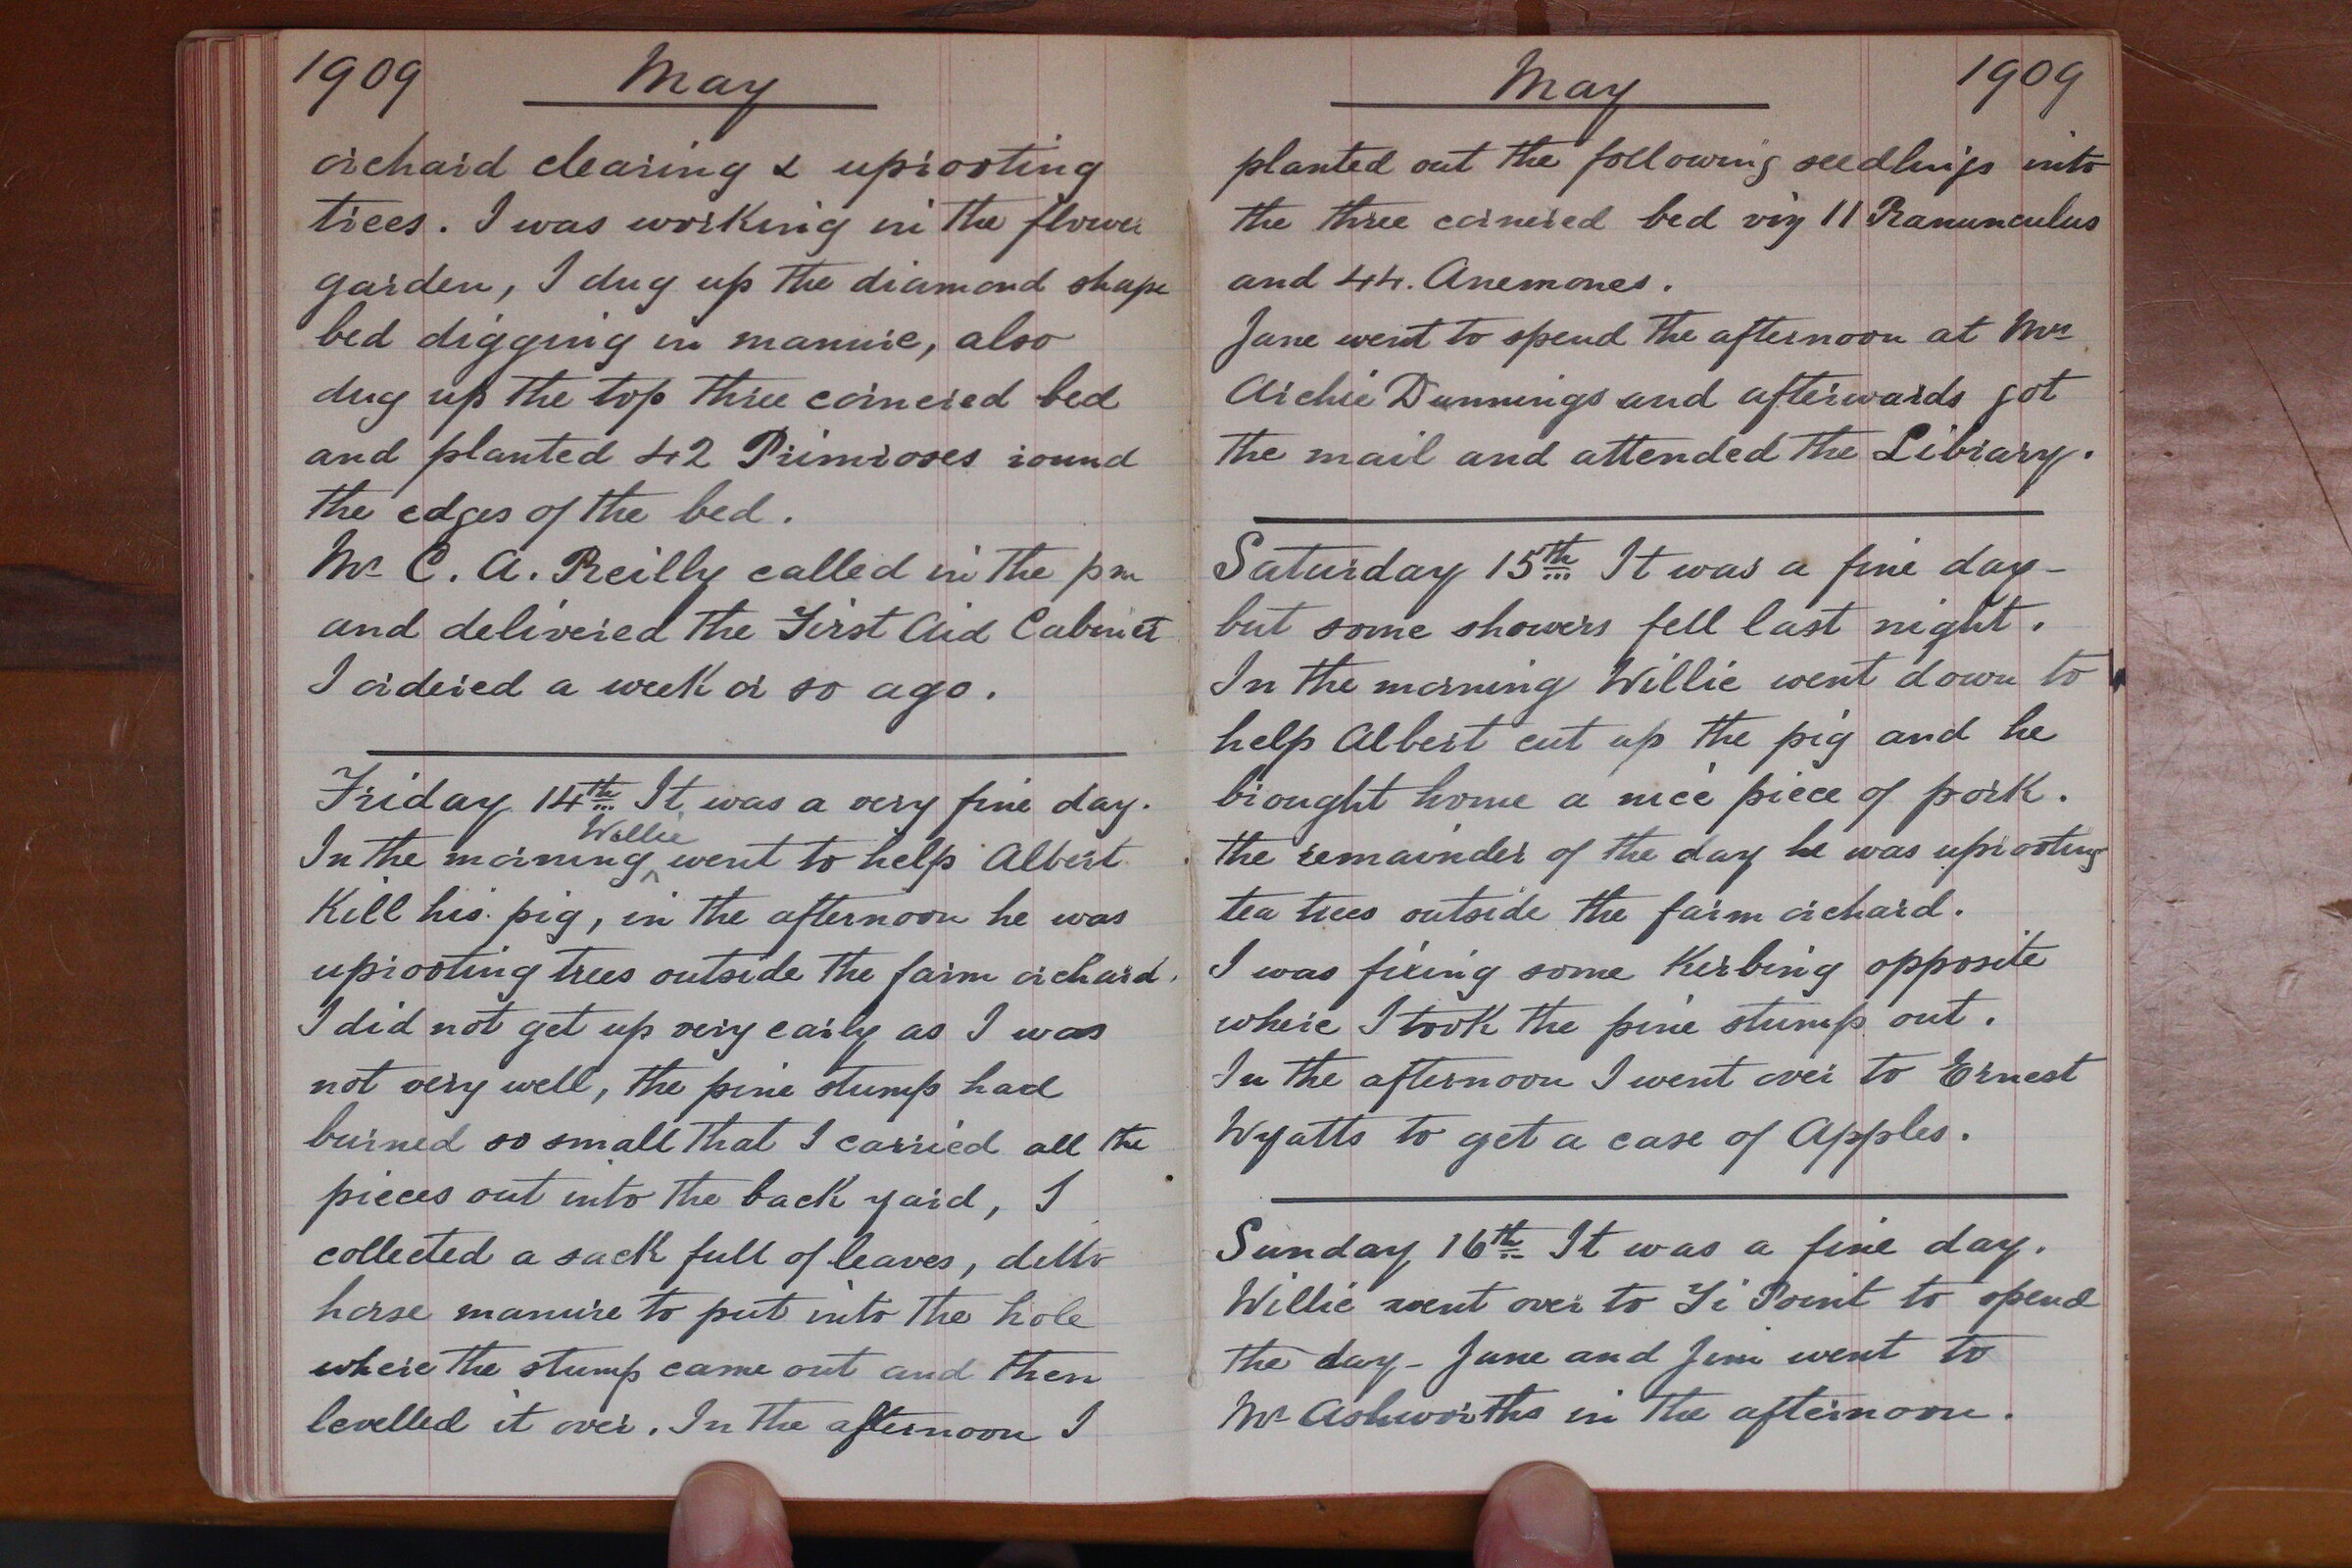 1909 May
orchard clearing & uprooting
trees. I was working in the flower
garden, I dug up the diamond shape
bed digging in manure, also
dug up the top three cornered bed
and planted 42 Primroses round
the edges of the bed.
Mr C. A. Reilly called in the pm
and delivered the First Aid Cabinet
I ordered a week or so ago.
Friday 14th It was a very fine day.
In the morning Willie went to help Albert
Kill his pig, in the afternoon he was
uprooting trees outside the farm orchard.
I did not get up very early as I was
not very well, the pine stump had
burned so small that I carried all the
pieces out into the back yard, I
collected a sack full of leaves, ditto
horse manure to put into the hole
where the stump came out and then
levelled it over. In the afternoon I
May 1909
planted out the following seedlings into
the three cornered bed viz 11 Ranunculus
and 44. Anemones.
Jane went to spend the afternoon at Mrs
Archie Dunnings and afterwards got
the mail and attended the Library.
Saturday 15th It was a fine day-
but some showers fell last night.
In the morning Willie went down to
help Albert cut up the pig and he
brought home a nice piece of pork.
the remainder of the day he was uprooting
tea trees outside the farm orchard.
I was fixing some Kerbing opposite
where I took the pine stump out.
In the afternoon I went over to Ernest
Wyatts to get a case of Apples.
Sunday 16th It was a fine day.
Willie went over to Ti Point to spend
the day- Jane and Jim went to
Mr Ashworths in the afternoon.